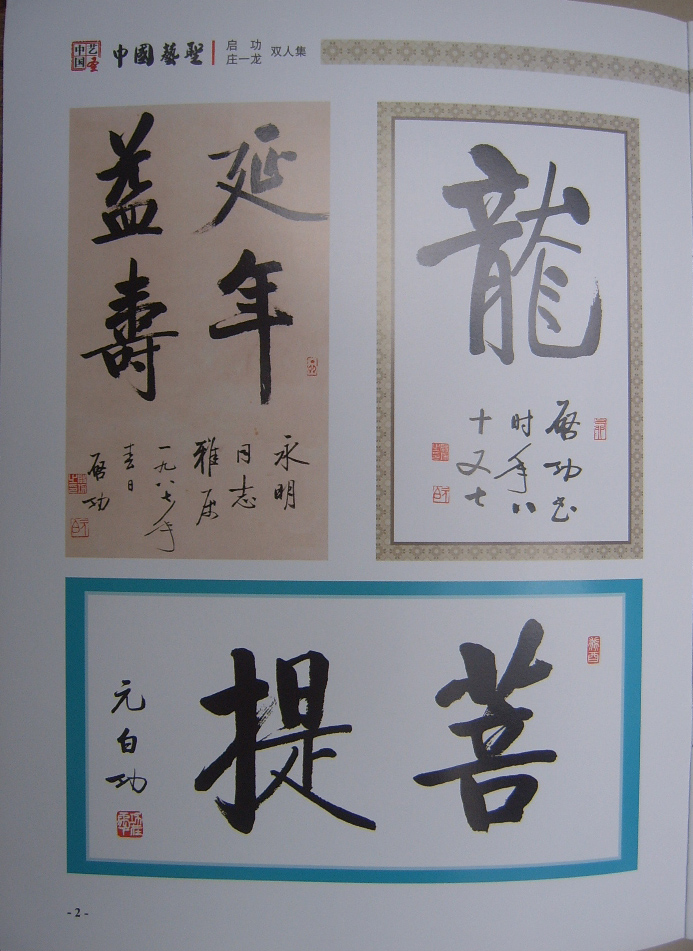 中国艺圣
中國藝聖
启功
庄一龙
双人集
延年
益壽
永明
同志
雅属
一九八七年
春日
启功
龍
启功书
时年八
十又七
菩提
元白功
- 2 -